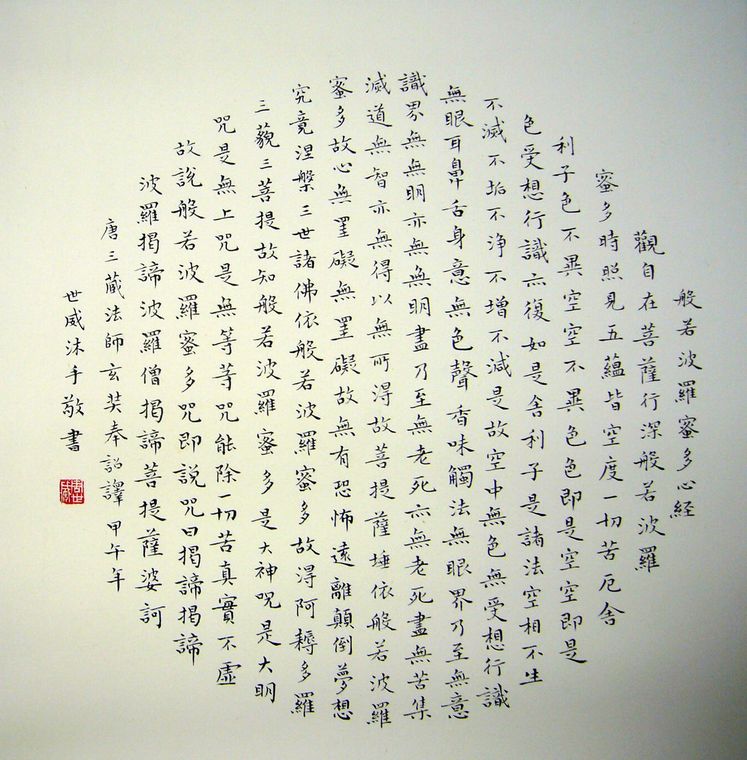 般若波羅蜜多心経
觀自在菩薩行深般若波羅
蜜多時照見五蘊皆空度一切苦厄舍
利子色不異空空不異色色即是空空即是
色受想行識亦復如是舍利子是諸法空相不生
不滅不垢不淨不增不減是故空中無色無受想行識
無眼耳鼻舌身意無色聲香味觸法無眼界乃至無意
識界無無明亦無無明盡乃至無老死亦無老死盡無苦集
滅道無智亦無得以無所得故菩提薩埵依般若波羅
蜜多故心無罣礙無罣礙故無有恐怖遠離顛倒夢想
究竟涅槃三世諸佛依般若波羅蜜多故得阿耨多羅
三藐三菩提故知般若波羅蜜多是大神咒是大明
咒是無上咒是無等等咒能除一切苦真實不虛
故說般若波羅蜜多咒即說咒曰揭諦揭諦
波羅揭諦波羅僧揭諦菩提薩婆訶
唐三藏法師玄奘奉詔譯 甲午年
世威沐手敬書